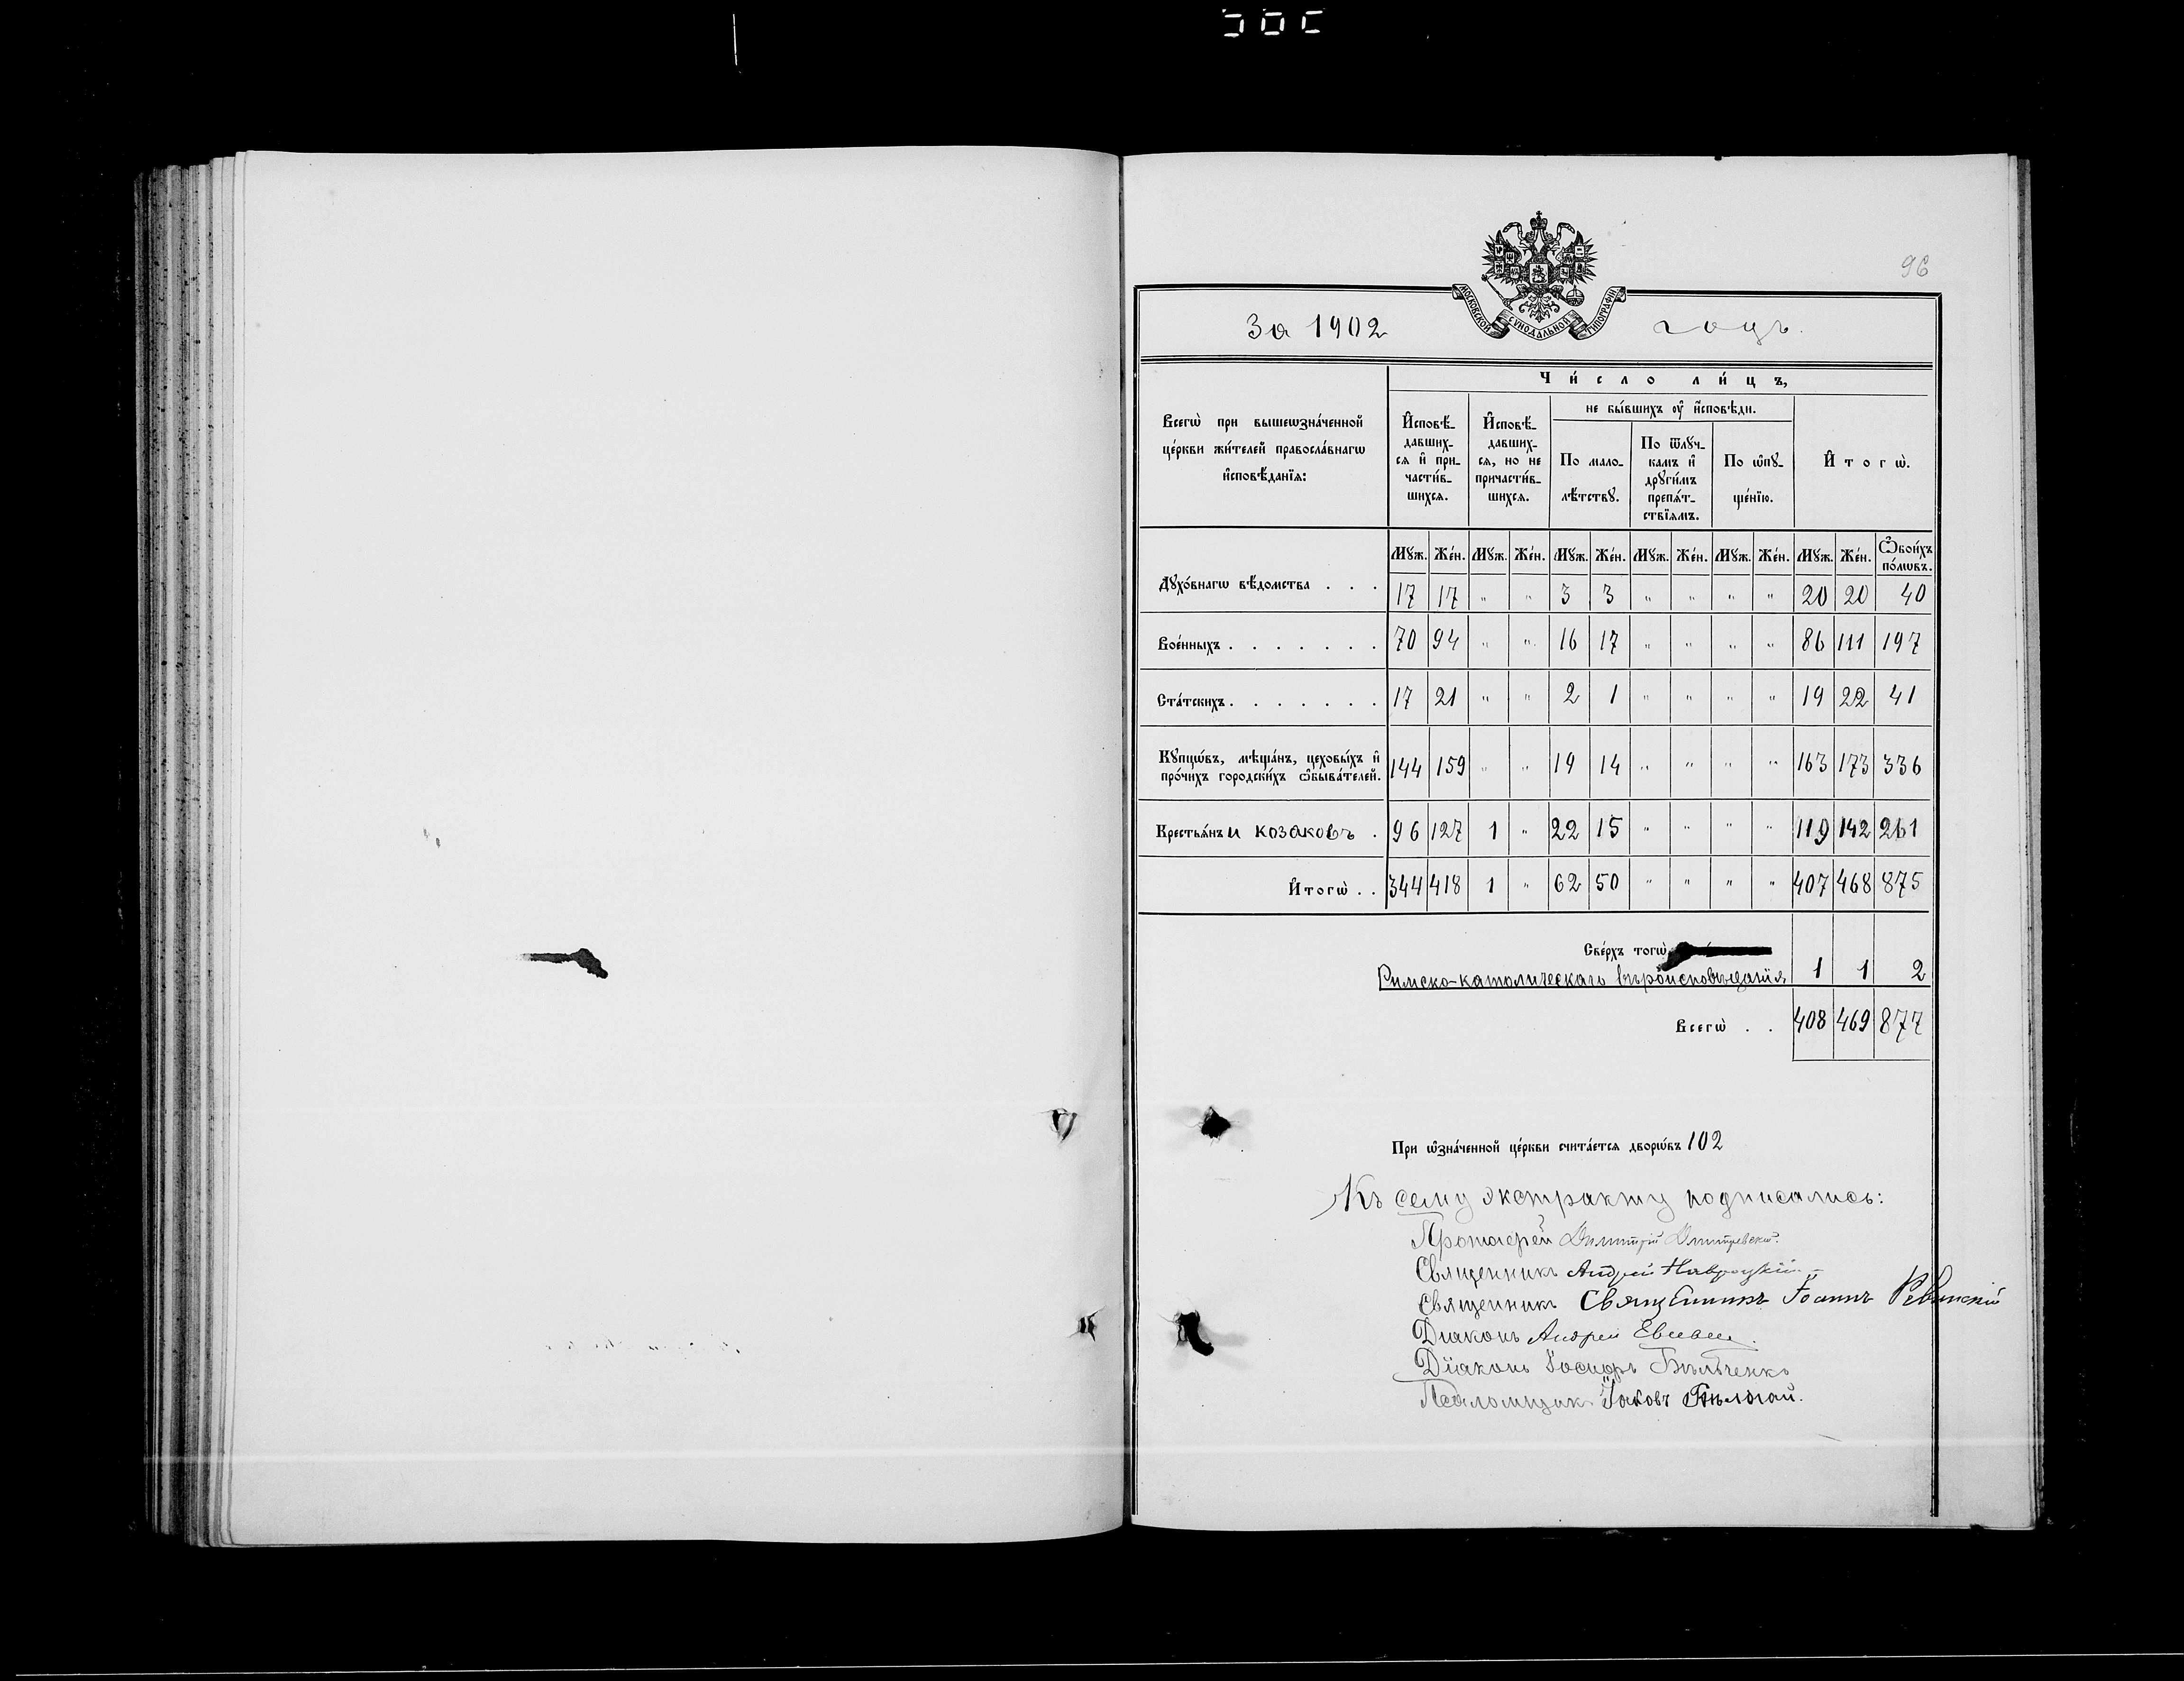 96
МОСКОВСКОЙ СѴНОДАЛЬНОЙ ТИПОГРАФІИ
За 1902 годъ.
Всегѡ̀ при вышеѡзна́ченной це́ркви жи́телей правосла́внагѡ и҆сповѣ́данїѧ:
Чи́сло ли́цъ,
И҆сповѣ́давшихсѧ и҆ причасти́вшихсѧ.
И҆сповѣ́давшихсѧ, но не причасти́вшихсѧ.
не бы́вшихъ ᲂу҆ и҆́сповѣди.
По малолѣ́тствꙋ.
По ѿлꙋ́чкамъ и҆ дрꙋги́мъ препѧ́тствїѧмъ.
По ѡ҆пꙋще́нїю.
И҆тогѡ̀.
Мꙋж. Же́н. Мꙋж. Же́н. Мꙋж. Же́н. Мꙋж. Же́н. Мꙋж. Же́н. Мꙋж. Же́н. Ѻ҆бои́хъ по́лѡвъ.
Дꙋхо́внагѡ вѣ́домства . . . 17 17 " " 3 3 " " " " 20 20 40
Вое́нныхъ . . . . . . . 70 94 " " 16 17 " " " " 86 111 197
Ста́тскихъ . . . . . . . 17 21 " " 2 1 " " " " 19 22 41
Кꙋпцѡ́въ, мѣща́нъ, цеховы́хъ и҆ про́чихъ городски́хъ ѡ҆быва́телей. 144 159 " " 19 14 " " " " 163 173 336
Крестьѧ́нъ и козаковъ . 96 127 1 " 22 15 " " " " 119 142 261
И҆тогѡ̀ . . 344 418 1 " 62 50 " " " " 407 468 875
Све́рхъ тогѡ̀
Римско-католическаго вѣроисповѣданія 1 1 2
Всегѡ̀ . . 408 469 877
При ѡ҆зна́ченной це́ркви счита́етсѧ дворѡ́въ 102
Къ сему экстракту подписались:
Протоіерей Димитрій Дмитревскій.
Священникъ Андрей Навроцкій
Священникъ Священникъ Іоаннъ
Діаконъ Андрей
Діаконъ Іосифъ Бѣльченко
Псаломщикъ Іаковъ